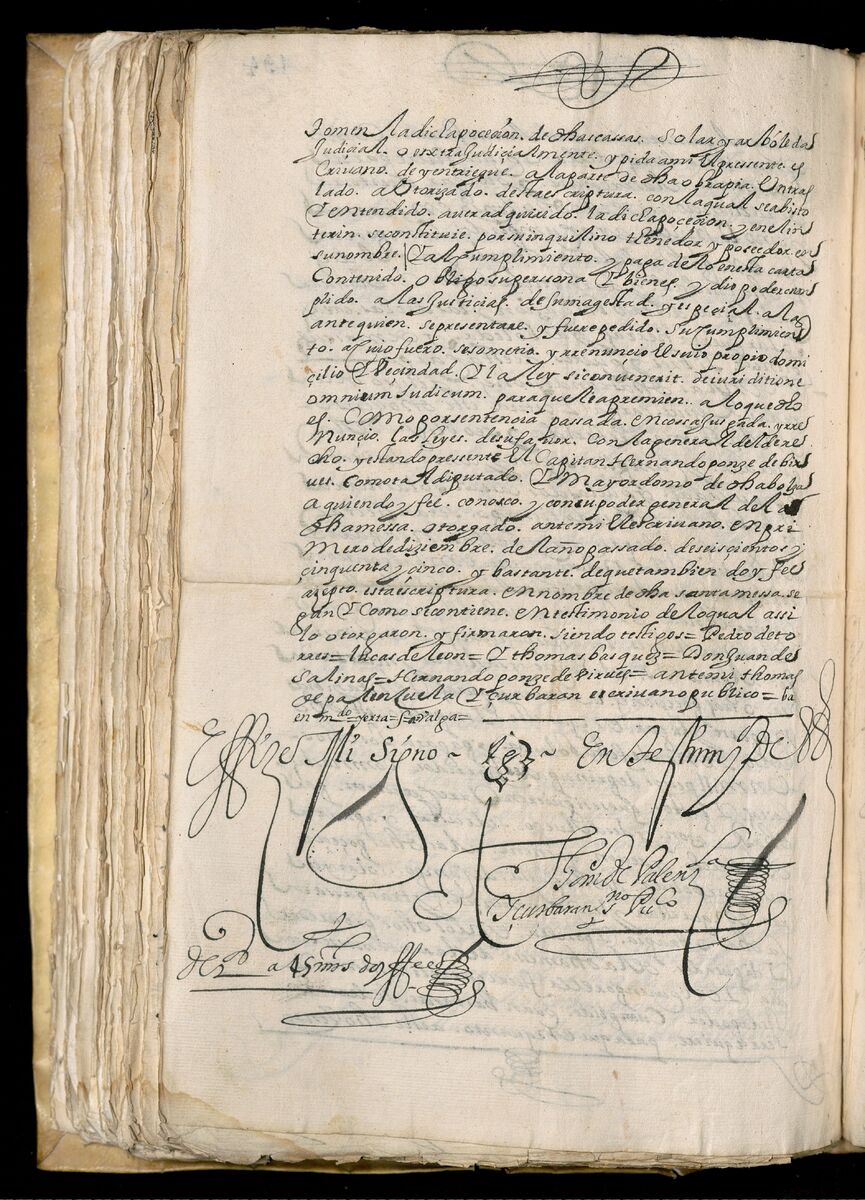 tomen la dicha poceçion. de dhas cassas. Solar y arboledas
Judiçial. o extraJudiçialmente. y pida a mi El pressente. es
Crivano. de y entriegue. a la parte de dha obra pia. Un tras
lado. autorizado. desta escriptura. con la qual sea bisto
Y entendido. aver adquirido. la dicha poçeçion. y en el in
terin. se constituie. por su inquilino thenedor y poseedor. en
su nombre. Y al cumplimiento. y paga de lo en esta carta
Contenido. obligo su perssona Y bienes y dio poder cum
plido. a las Justicias. de su magestad. y especial. a las
ante quien. se presentare. y fuere pedido. su cumplimien
to. a cuio fuero. se sometio. y rrenunçio El suio propio domi
çilio Y Veçindad. Y la ley si convenerit. de iuriditione
omnium Judicum. para que le apremien. a lo que dho
es. Como por sentencia passada. en cossa Jusgada. y rre
nunçio. las leyes. de su favor. con la general del dere
cho. y estando pressente El Capitan Hernando ponze de bir
ues. como tal diputado. Y Mayordomo de dha bolza
a quien doy fee. conosco. y con su poder general de la
dha messa. otorgado. ante mi El escrivano. en pri
mero de diziembre. del año passado. de seisçientos y
çinquenta y çinco. y bastante. de que tambien doy fee
açepto. esta escriptura. en nombre de dha santa messa. se
gun Y Como se contiene. en testimonio de lo qual assi
lo otorgaron. y firmaron. siendo testigos= Pedro de to
rres= lucas de leon= Y thomas basquez= Don Juan de
Salinas= Hernando ponze de birues= ante mi thomas
de palenzuela Y çurbaran escrivano publico= ba
en mdo
E ffize Mi Signo ~ ~ En testimo De Vd
Thomas de Valenzla
Y çurbaran sno Puco
a 45 mrs doy ffee